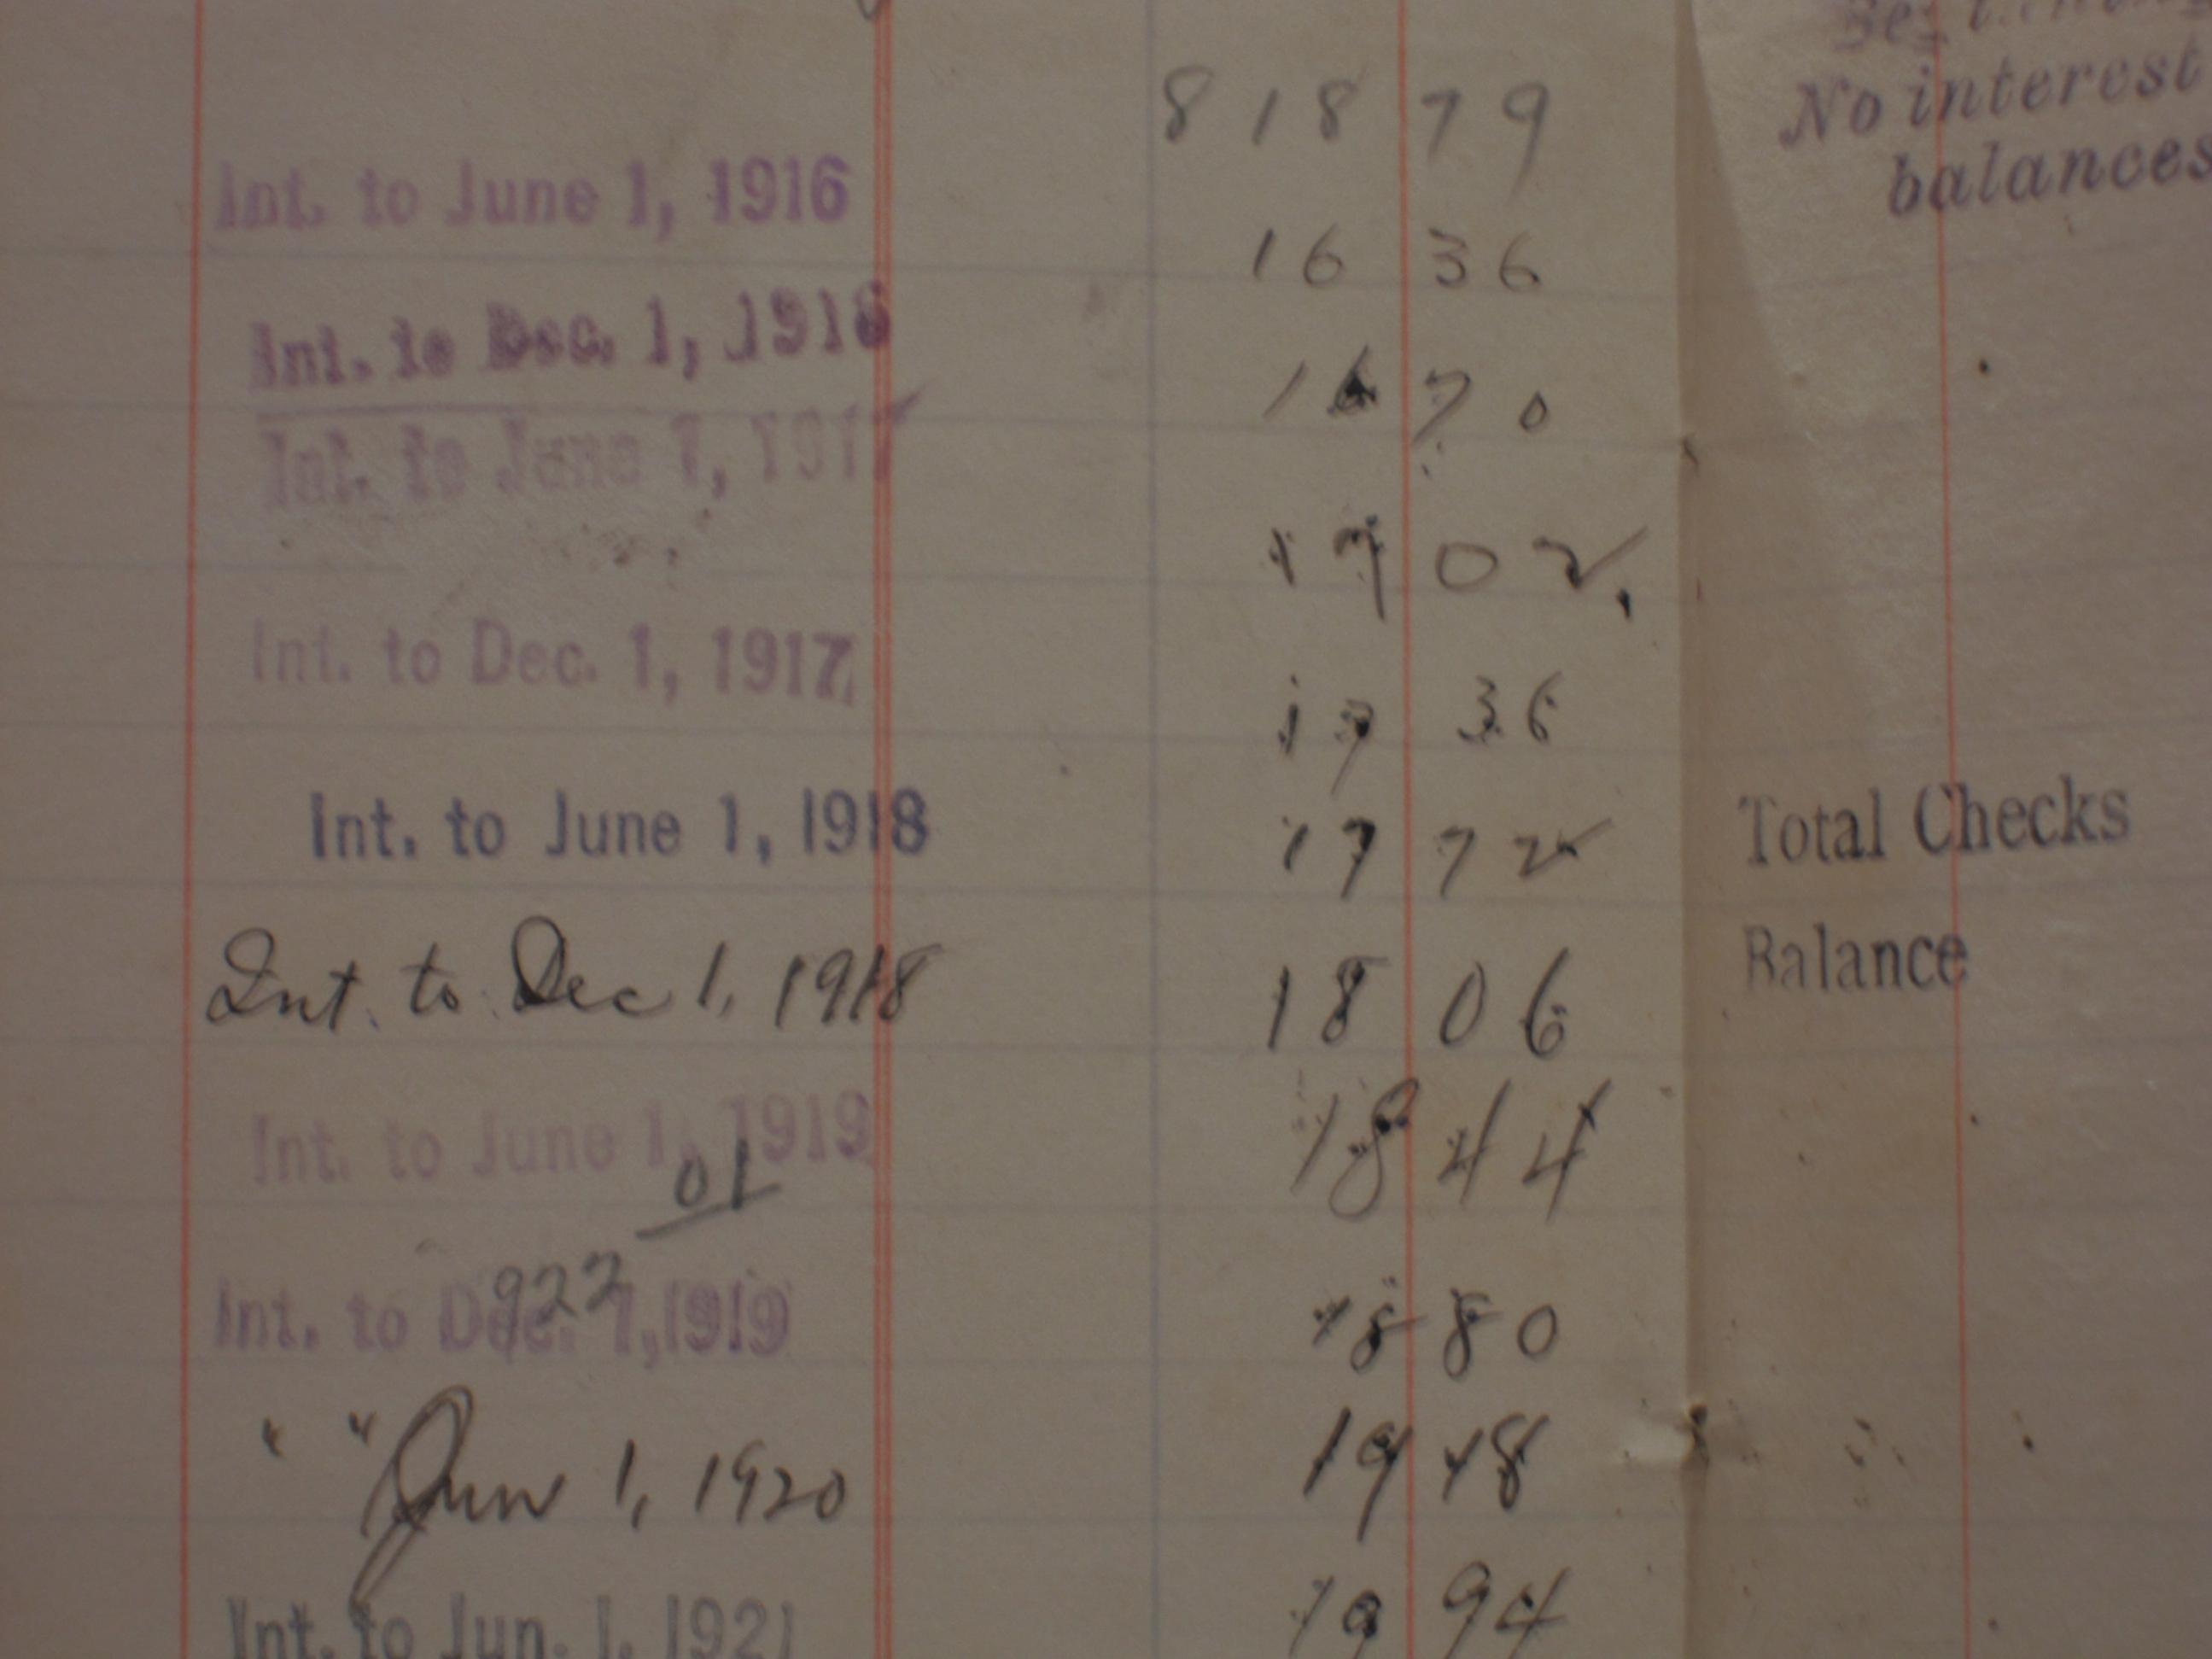 818 79
No interest
balances
Int. to June 1, 1916 16 36
Int. to Dec. 1, 1916 16 70
Int. to June 1, 1917 17 02
Int. to Dec. 1, 1917 17 36
Int. to June 1, 1918 17 72
Total Checks
Int. to Dec 1, 1918 18 06
Balance
Int. to June 1, 1919 18 44
01
922
Int. to Dec. 1, 1919 18 80
" " Jun 1, 1920 19 18
Int. to Jun. 1, 1921 19 94